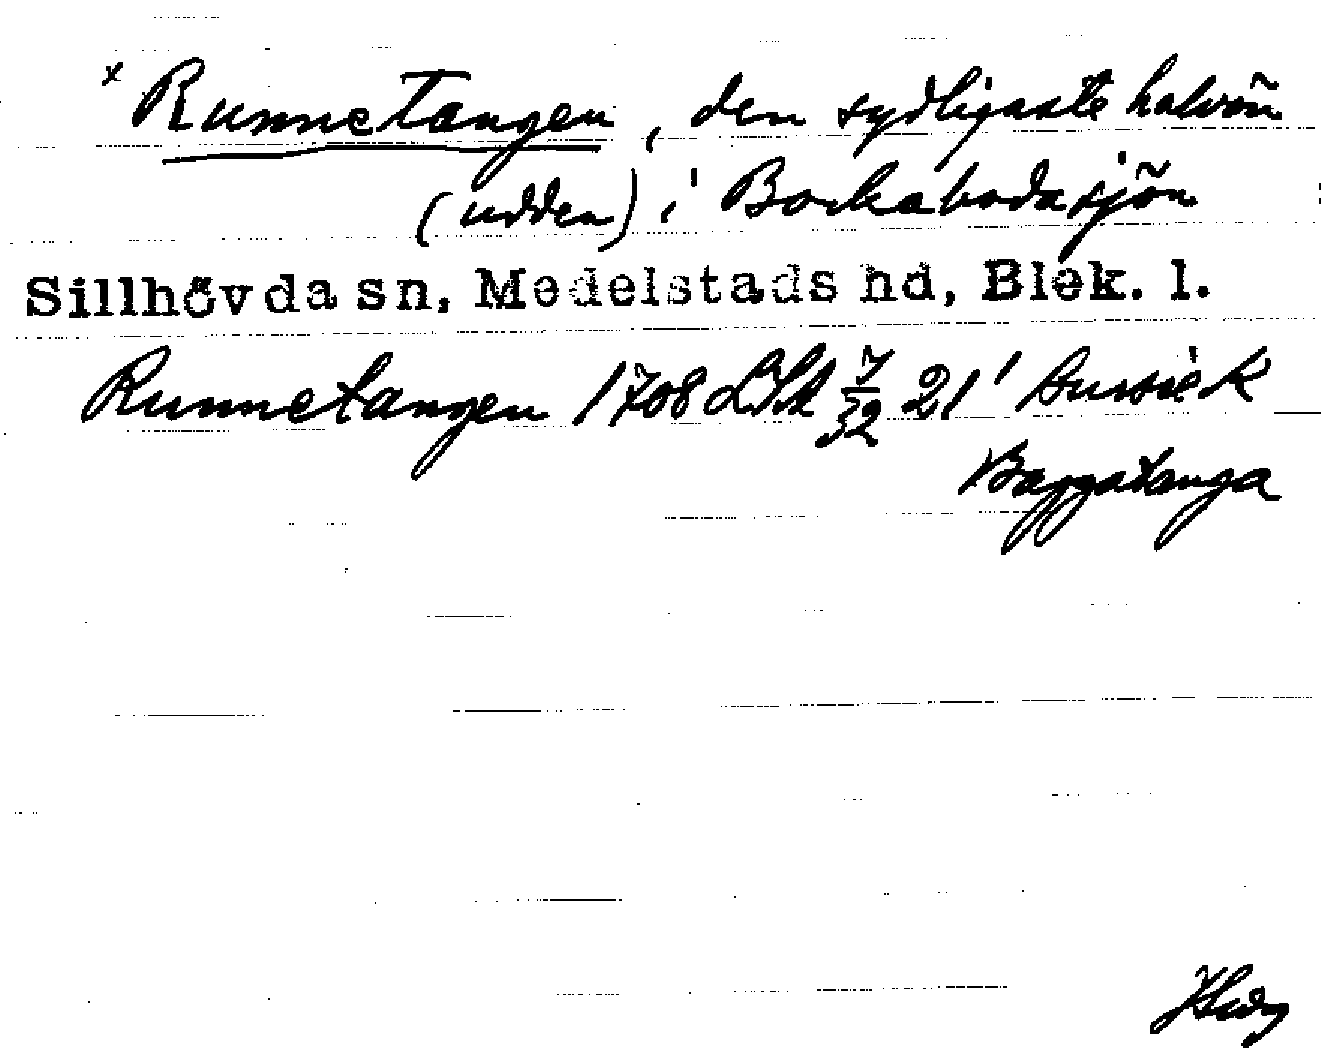 x Runnetangen, den sydligaste halvön
(udden) i Bockabodasjön
Sillhövda sn, Medelstads hd, Blek. l.
Runnetangen 1708 LSA 7/32 21'
Baggatanga